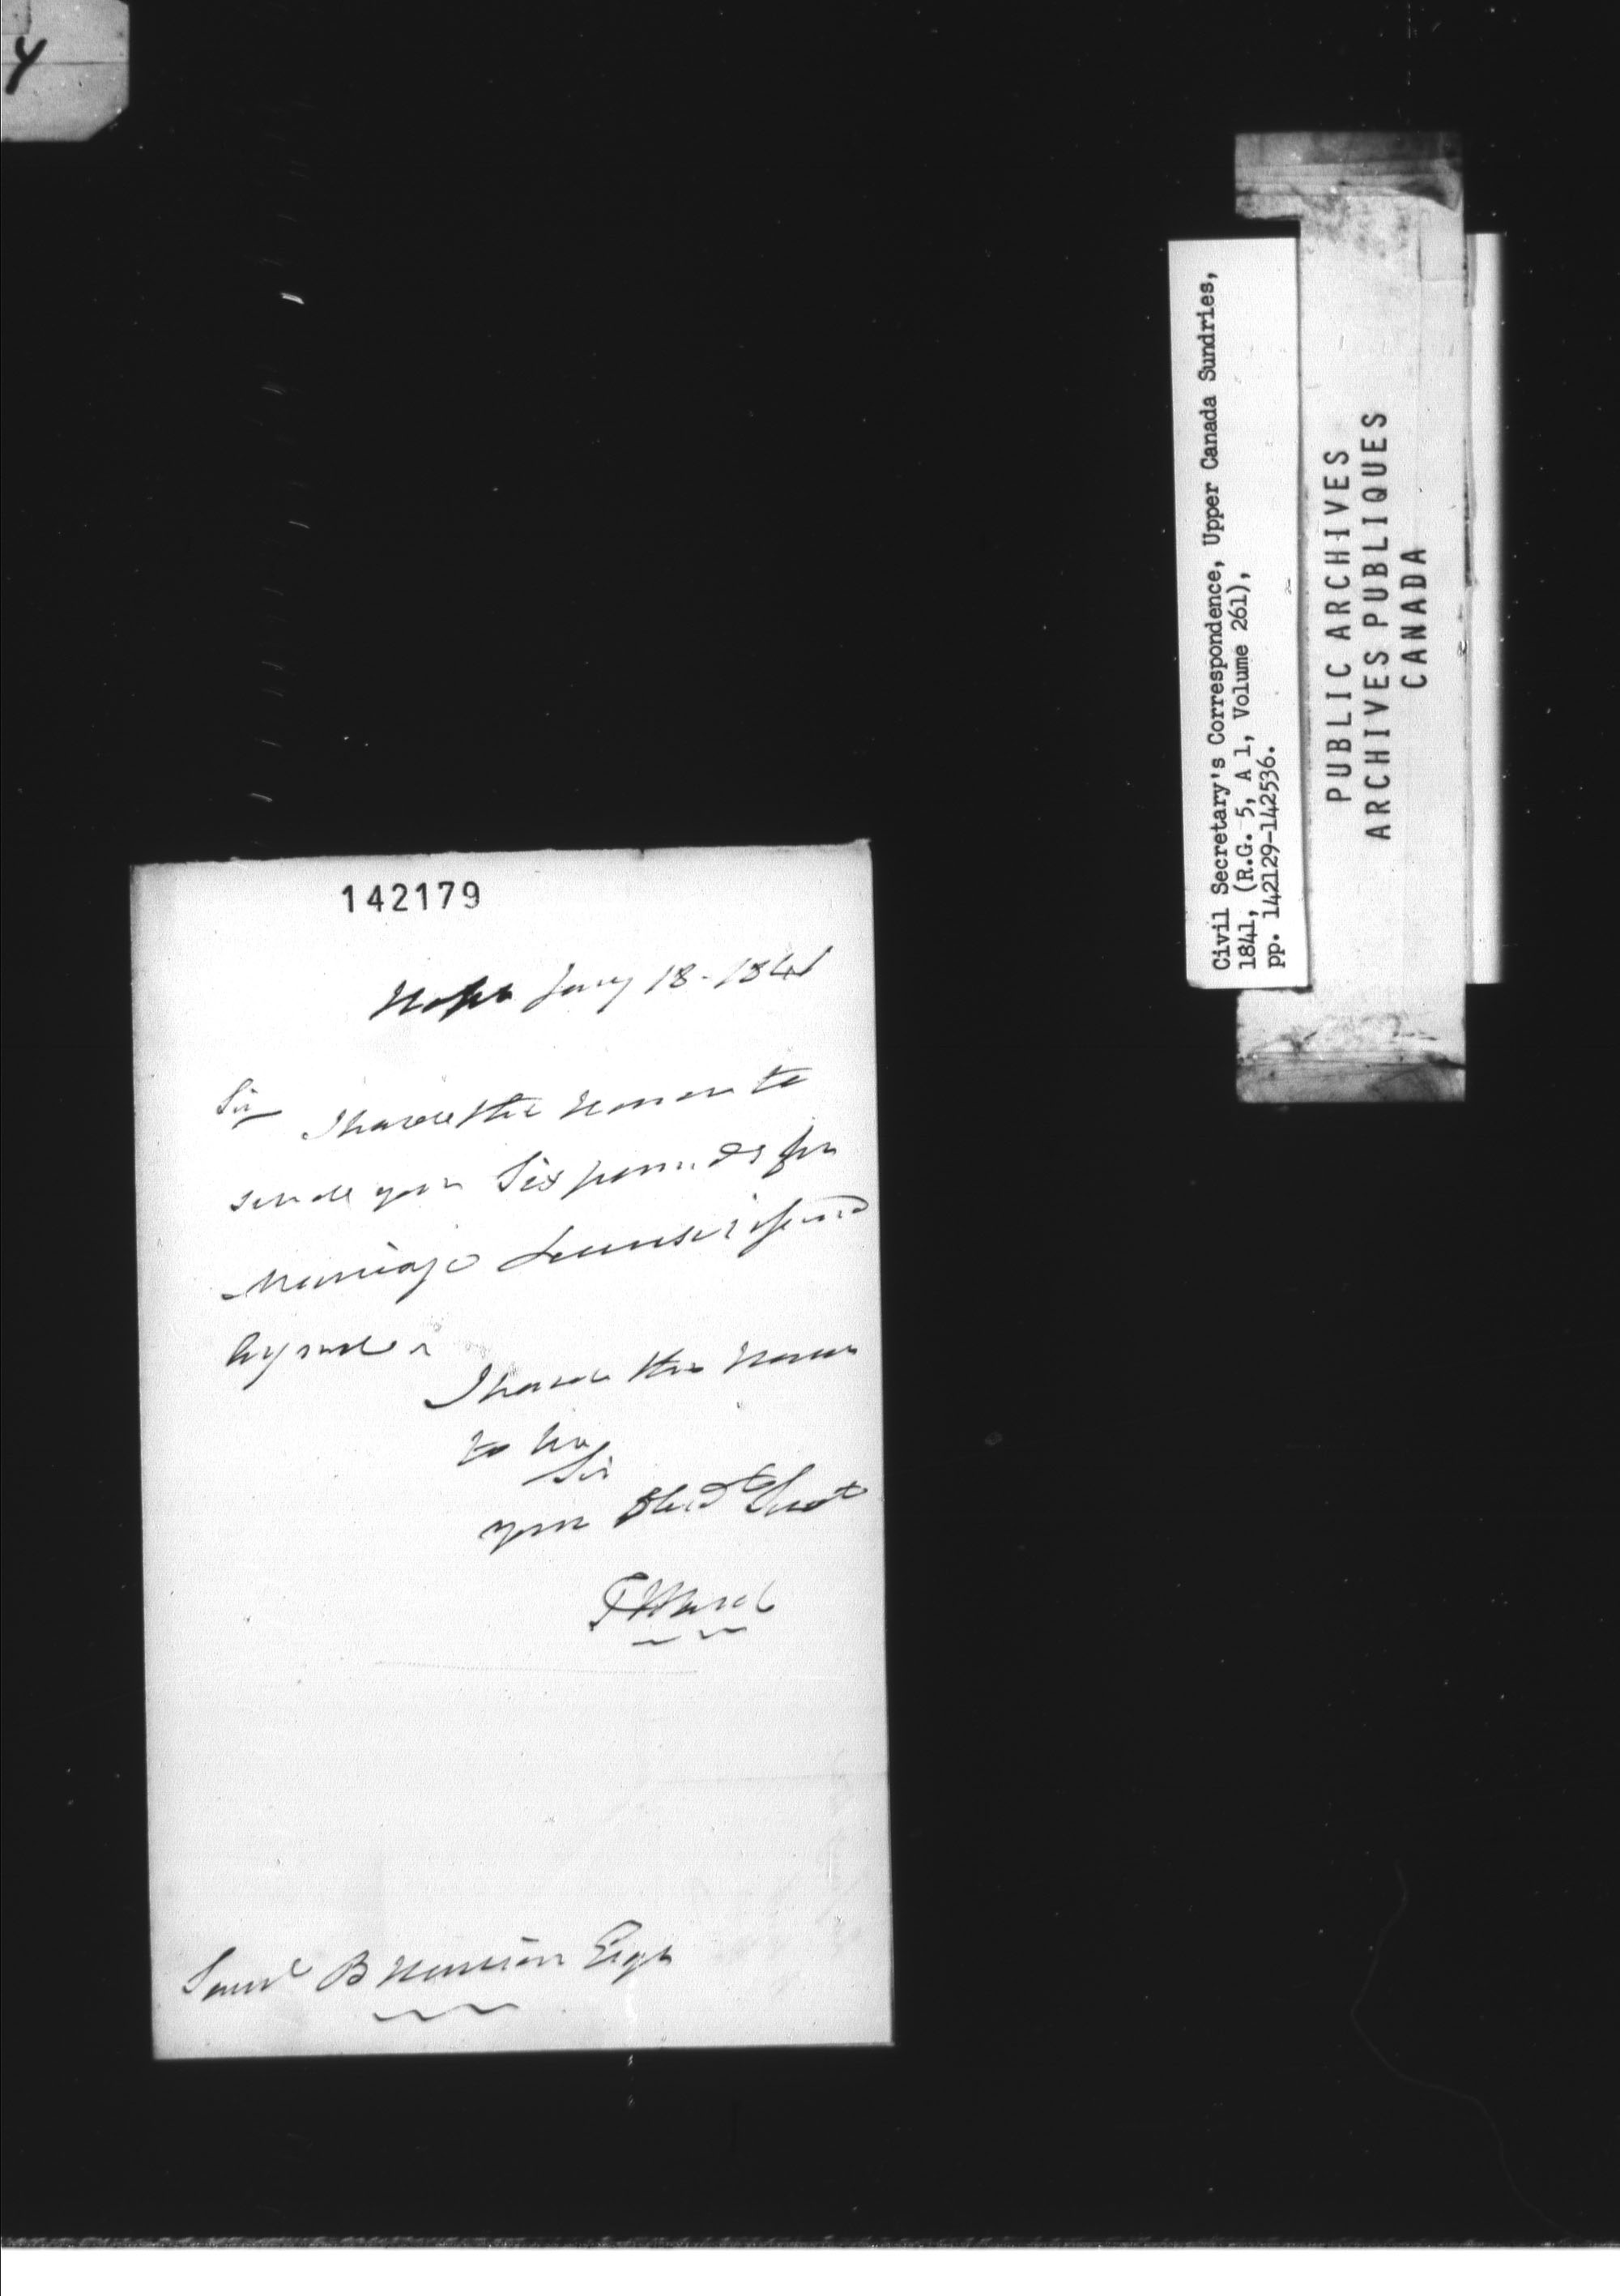 y
142179
Hope Jany 18-1841
Sir
I have the Honor to
send you Six pounds for
Marriage Licenses issued
by me
I have the Honor
to be
Sir
your Obedt Servt
T Ward
Saml B Harrison Esqr
Civil Secretary's Correspondence, Upper Canada Sundries,
1841, (R.G. 5, A 1, Volume 261),
pp. 142129-142536.
PUBLIC ARCHIVES
ARCHIVES PUBLIQUES
CANADA